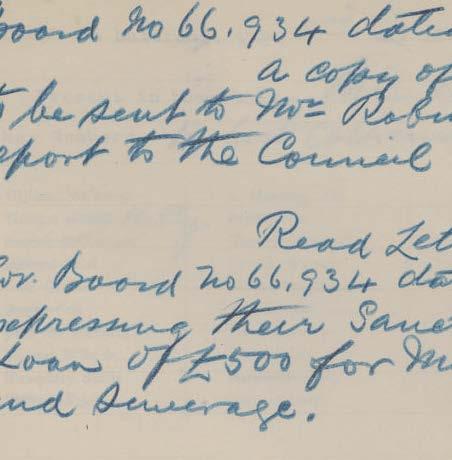 Board No 66,934 date
a copy of
t be sent to Mr Robin
eport to the Council
Read Let
Gov. Board No 66,934 da
expressing their Sanc
Loan of £500 for M
and Sewerage.